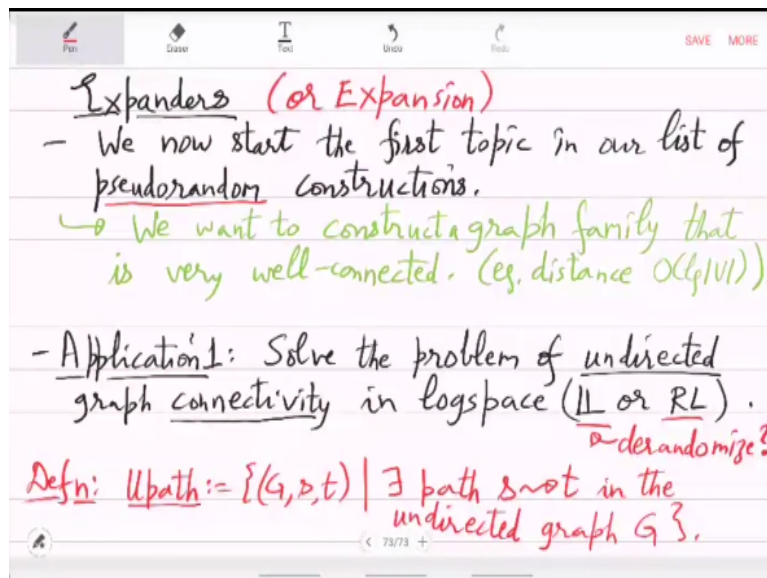 Pen Eraser Text Undo Redo SAVE MORE
Expanders (or Expansion)
- We now start the first topic in our list of
pseudorandom constructions.
↳ We want to construct a graph family that
is very well-connected. (eg. distance O(lg|V|))
- Application 1: Solve the problem of undirected
graph connectivity in logspace (L or RL).
derandomize?
Defn: Upath := {(G,s,t) | ∃ path s⇝t in the
undirected graph G}.
< 73/73 +